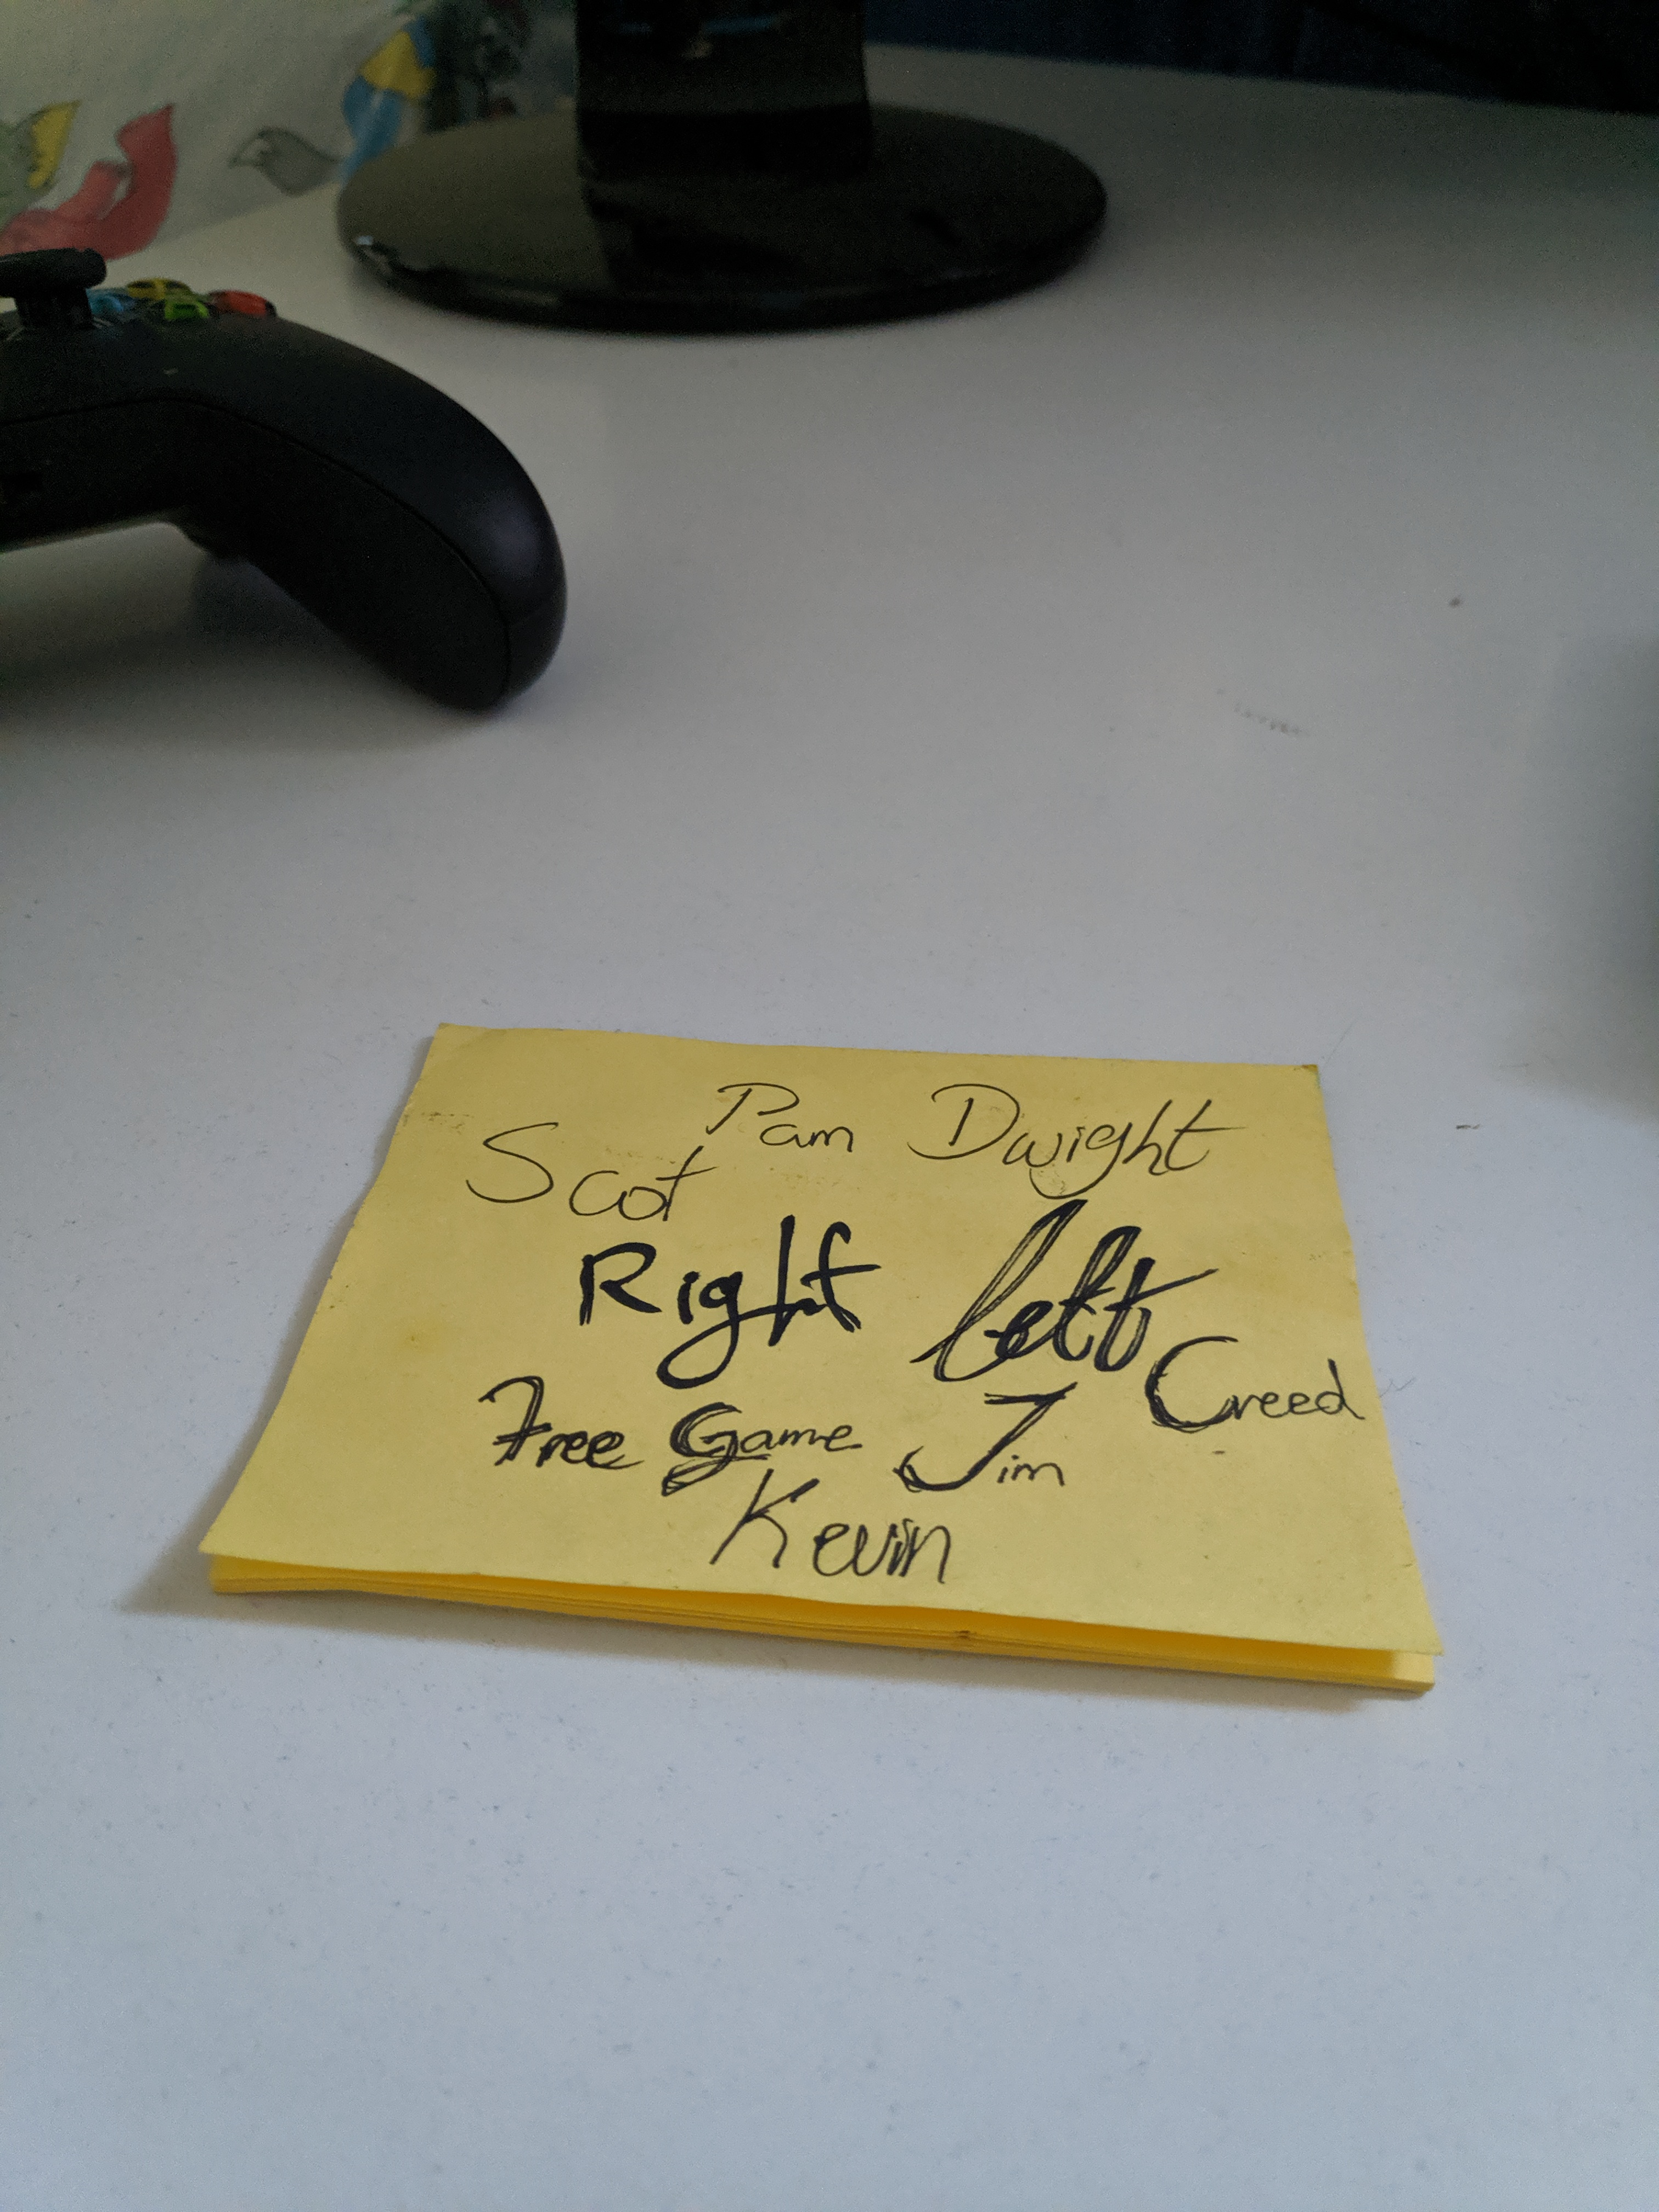 Pam Dwight
Scot
Right left
Creed
Free Game Jim
Kevin